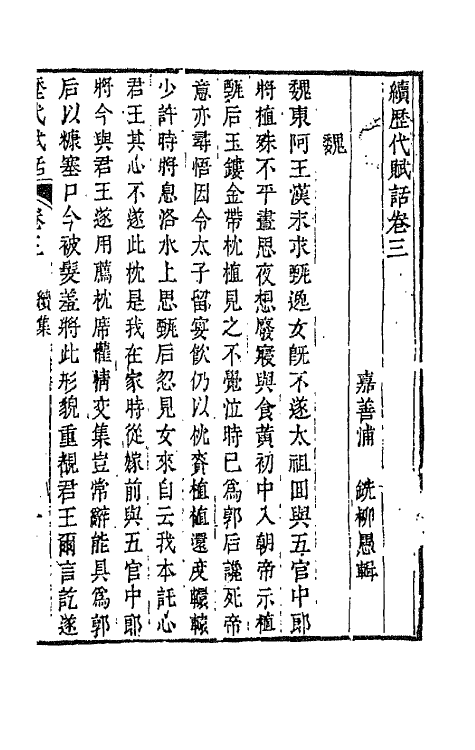 續歷代賦話卷三
嘉善浦 銑柳愚輯
魏
魏東阿王漢末求甄逸女旣不遂太祖回與五官中郎
將植殊不平晝思夜想廢寢與食黃初中入朝帝示植
甄后玉鏤金帶枕植見之不覺泣時已為郭后讒死帝
意亦尋悟因令太子留宴飲仍以枕賚植植還度轘轅
少許時將息洛水上思甄后忽見女來自云我本託心
君王其心不遂此枕是我在家時從嫁前與五官中郎
將今與君王遂用薦枕席懽情交集豈常辭能具為郭
后以糠塞口今被髮羞將此形貌重覩君王爾言訖遂
歷代賦話 卷三 續集 一